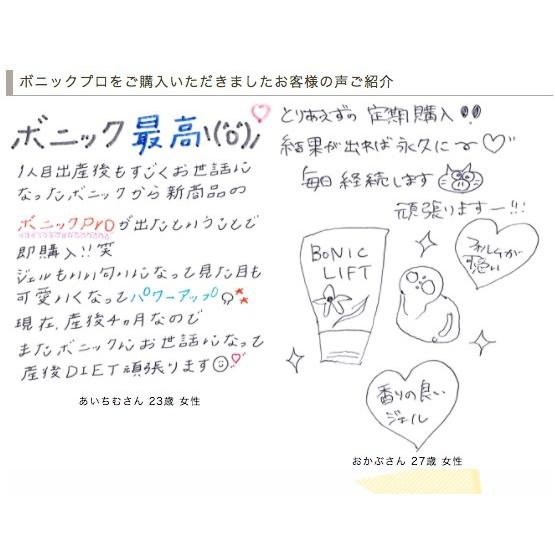 ボニックプロをご購入いただきましたお客様の声ご紹介
ボニック最高\(^o^)/
1人目出産後もすごくお世話に
なったボニックから新商品の
ボニックProが出たということで
即購入!!笑
ジェルもいい匂いになって見た目も
可愛いくなってパワーアップ
現在、産後4ヶ月なので
またボニックにお世話になって
産後DIET頑張ります
あいちむさん 23歳 女性
とりあえずの 定期購入!!
結果が出れば永久に〜♡
毎日経続します
頑張りますー!!!
BONIC
LIFT
フォルムが
可愛い
香りの良い
ジェル
おかぷさん 27歳 女性